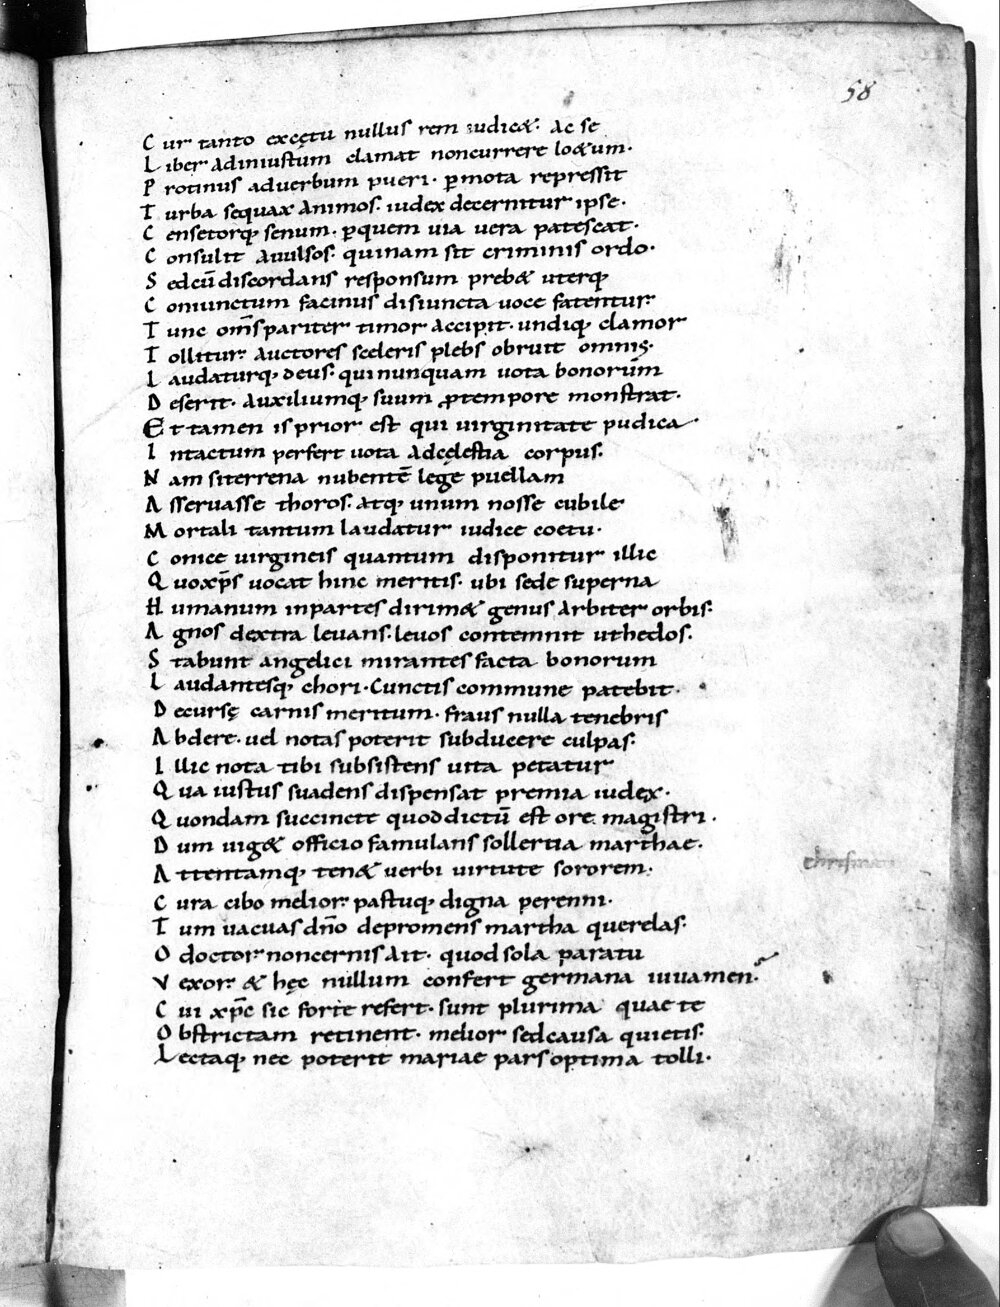 58
C ur tanto excętu nullus rem iudic&. ac se
L iber adiniustum clamat noncurrere loetum.
P rotinus aduerbum pueri. ꝑmota repressit
T urba sequax animos. iudex decernitur ipse.
C ensetorq; senum. ꝑquem uia uera patescat.
C onsulit auulsos. quinam sit criminis ordo.
S edcū discordans responsum preb& uterq;
C oniunctum facinus disiuncta uoce fatentur
T unc om̄s pariter timor accipit. undiq; clamor
T ollitur. auctores sceleris plebs obruit omnis.
L audaturq; deus. qui nunquam uota bonorūm
D eserit. auxiliumq; suum ꝓtempore monstrat.
E t tamen is prior est qui uirginitate pudica.
I ntactum perfert uota adcęlestia corpus.
N am siterrena nubentē lege puellam
A sseruasse thoros. atq; unum nosse cubile
M ortali tantum laudatur iudice coetu.
C onice uirgineis quantum disponitur illic
Q uoxp̄s uocat hinc meritis. ubi sede superna
H umanum inpartes dirim& genus arbiter orbis.
A gnos dextra leuans. leuos contemnit uthedos.
S tabunt angelici mirantes facta bonorum
L audantesq; chori. Cunctis commune patebit.
D ecursę carnis meritum. fraus nulla tenebris
A bdere. uel notas poterit subducere culpas.
I llic nota tibi subsistens uita petatur
Q ua iustus suadens dispensat premia iudex.
Q uondam succincte quod dictū est ore magistri.
D um uig& officio famulans sollertia marthae.
A ttentamq; ten& uerbi uirtute sororem.
C ura cibo melior. pastuq; digna perenni.
T um uacuas dn̄o depromens martha querelas.
O doctor noncernis ait. quod sola paratu
V exor. & hęc nullum confert germana iuuamen.
C ui xp̄c sic forte refert. sunt plurima quae te
O bstrictam retinent. melior sedcausa quietis.
L ectaq; nec poterit mariae pars optima tolli.